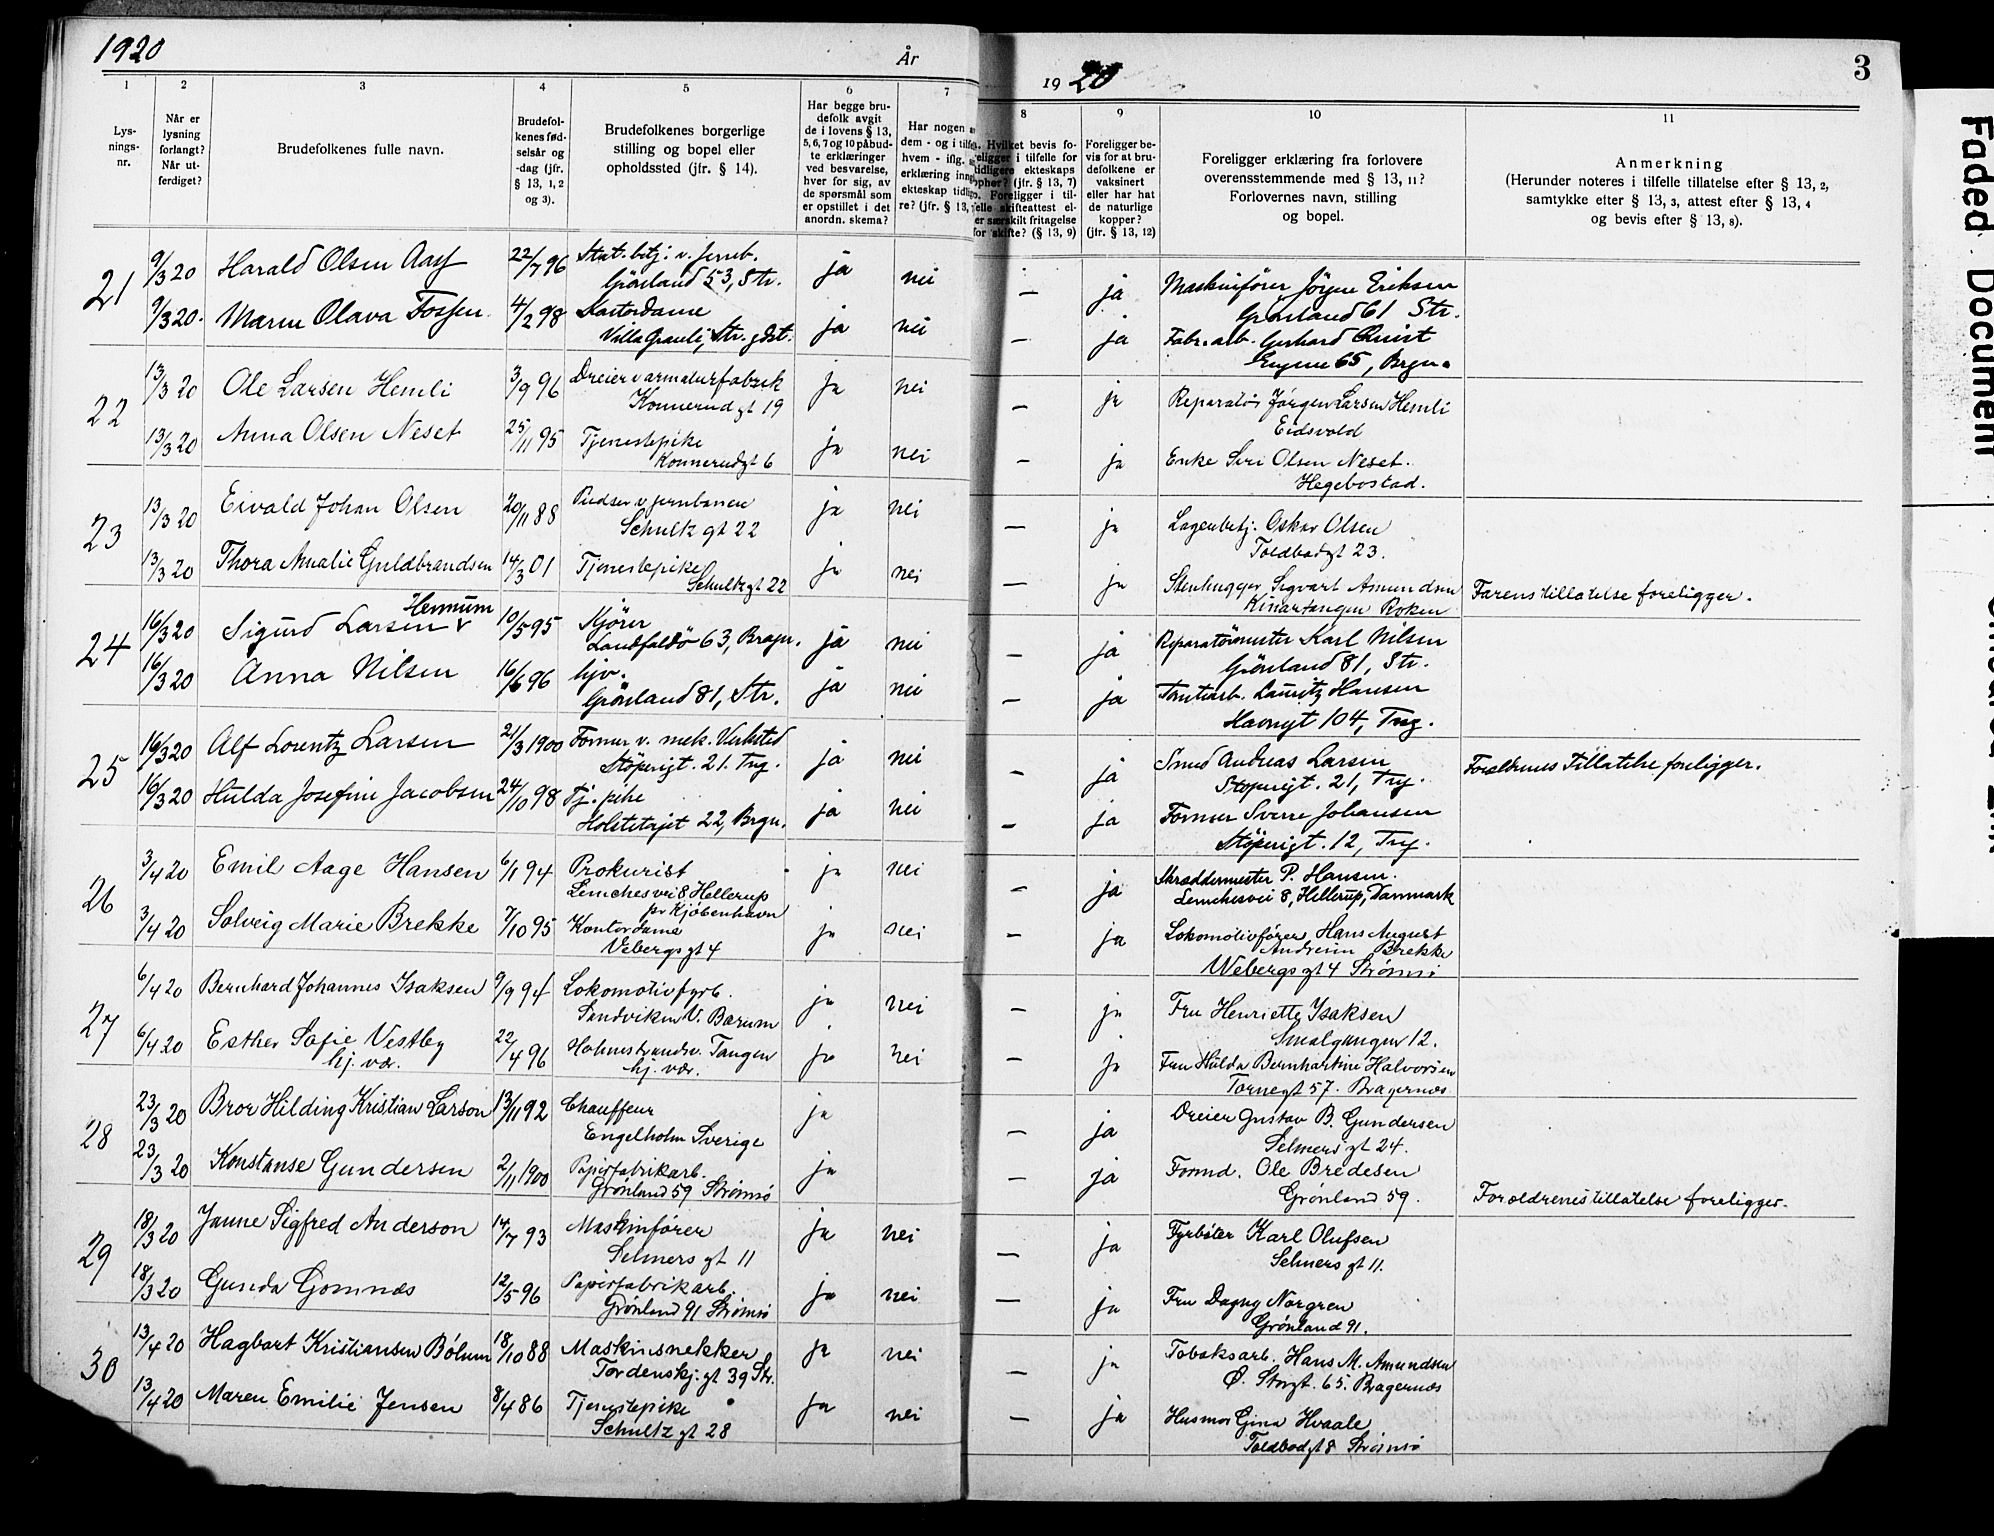 1920
År
1920
3
1
2
3
4
5
6
7
8
9
10
11
Lys-
nings-
nr.
Når er
lysning
forlangt?
Når ut-
ferdiget?
Brudefolkenes fulle navn.
Brudefol-
kenes fød-
selsår og
-dag (jfr.
§ 13, 1, 2
og 3).
Brudefolkenes borgerlige
stilling og bopel eller
opholdssted (jfr. § 14).
Har begge bru-
defolk avgit
de i lovens § 13,
5, 6, 7 og 10 påbud-
te erklæringer
ved besvarelse,
hver for sig, av
de spørsmål som
er opstillet i det
anordn. skema?
Har nogen
dem - og i
hvem - iflg.
erklæring
ekteskap
re? (jfr. § 13,
Hvilket bevis fo-
religger i tilfelle for
tidligere ekteskaps
ophør? (jfr. § 13, 7)
Foreligger i til-
felle skifteattest el-
er særskilt fritagelse
for skifte? (§ 13, 9)
Foreligger be-
vis for at bru-
defolkene er
vaksinert
eller har hat
de naturlige
kopper?
(jfr. § 13, 12)
Foreligger erklæring fra forlovere
overensstemmende med § 13, 11?
Forlovernes navn, stilling
og bopel.
Anmerkning
(Herunder noteres i tilfelle tillatelse efter § 13, 2,
samtykke efter § 13, 3, attest efter § 13, 4
og bevis efter § 13, 8).
21
9/3 20 Harald Olsen Aas 22/7 96 Stat.betj. v. jernb. ja nei — ja Maskinfører Jörgen Eriksen
Grönland 53, Str. Grönland 61 Str.
9/3 20. Maren Olava Fossen 4/2 98 Kontordame ja nei — ja Fabr.arb. Gerhard Quist
Villa Granli, Str. gdst. Engene 65, Brgn.
22
13/3 20 Ole Larsen Hemli 3/9 96 Dreier v armaturfabrik ja nei — ja Reparatør Jørgen Larsen Hemli
Konnerud gt 19 Eidsvold
13/3 20 Anna Olsen Neset 25/11 95 Tjenestepike ja nei — ja Enke Siri Olsen Neset.
Konnerudgt 6 Hegebostad.
23
13/3 20 Eivald Johan Olsen 20/11 88 Pudser v jernbanen ja nei — ja Lagerbetj. Oskar Olsen
Schultz gt 22 Toldbodgt 23.
13/3 20 Thora Amalie Guldbrandsen 14/3 01 Tjenestepike ja nei — ja Stenhugger Sigvart Asmundsen Farens tillatelse foreligger.
Schultzgt 22 Røken
24
Hennum
16/3 20 Sigurd Larsen v 10/5 95 Kjörer ja nei — ja Reparatörmester Karl Nilsen
Landfaldö 63, Bragn. Grönland 81, Str.
16/3 20 Anna Nilsen 16/6 96 hjv. ja nei — ja Tomtearb. Lauritz Hansen
Grönland 81, Str. Havnegt 104, Tng.
25
16/3 20 Alf Lorentz Larsen 21/3 1900 Former v. mek. Verksted ja nei — ja Smed Andreas Larsen Forældrenes Tillatelse foreligger.
Stöperigt. 21. Tng. Stöperigt. 21, Tng.
16/3 20 Hulda Josefine Jacobsen 24/10 98 Tj. pike ja nei — ja Former Sverre Johansen
22, Brgn. Stöperigt. 12, Tng.
26
3/4 20 Emil Aage Hansen 6/1 94 Prokurist ja nei — ja Skræddermester P. Hansen.
Lemchesvei 8 Hellerup Lemchesvei 8, Hellerup, Danmark
pr Kjøbenhavn
3/4 20 Solveig Marie Brekke 7/10 95 Kontordame ja nei — ja Lokomotivfører Hans August
Vebergs gt 4 Brekke
Webergs gt 4 Strømsø
27
6/4 20 Bernhard Johannes Isaksen 9/9 94 Lokomotivfyrb. ja nei — ja Fru Henriette Isaksen
Sandviken V. Bærum Smalgangen 12.
6/4 20 Esther Sofie Vestby 22/4 96 Holmestrandsv. Tangen ja nei — ja Fru Hulda Bernhartine Halvorsen
hj. vær. hj. vær. Tornegt 57. Bragernæs
28
23/3 20 Bror Hilding Kristian Larson 13/11 92 Chauffeur ja — ja Dreier Gustav B. Gundersen
Engelholm Sverige Selmers gt 24.
23/3 20 Konstanse Gundersen 2/11 1900 Papirfabrikarb. ja — ja Formd. Ole Bredesen
Grønland 59 Strømsø Grønland 59. Forældrenes tillatelse foreligger.
29
18/3 20 Janne Sigfred Anderson 14/7 93 Maskinfører ja nei — ja Fyrbøter Karl Olufsen
Selmers gt 11 Selmers gt 11.
18/3 20 Gunda Gomnæs 12/5 96 Papirfabrikarb. ja nei — ja Fru Dagny Norgren
Grønland 91 Strømsø Grønland 91.
30
13/4 20 Hagbart Kristiansen Bólum 18/10 88 Maskinsnekker ja nei — ja Tobaksarb. Hans M. Amundsen
Tordenskj. gt 39 Str. Ø. Storgt. 65. Bragernæs
13/4 20 Maren Emilie Jensen 8/4 86 Tjenestepike ja nei — ja Husmor Gina Hvaale
Schultz gt 28 Toldbodgt 8 Strømsø
Faded Document